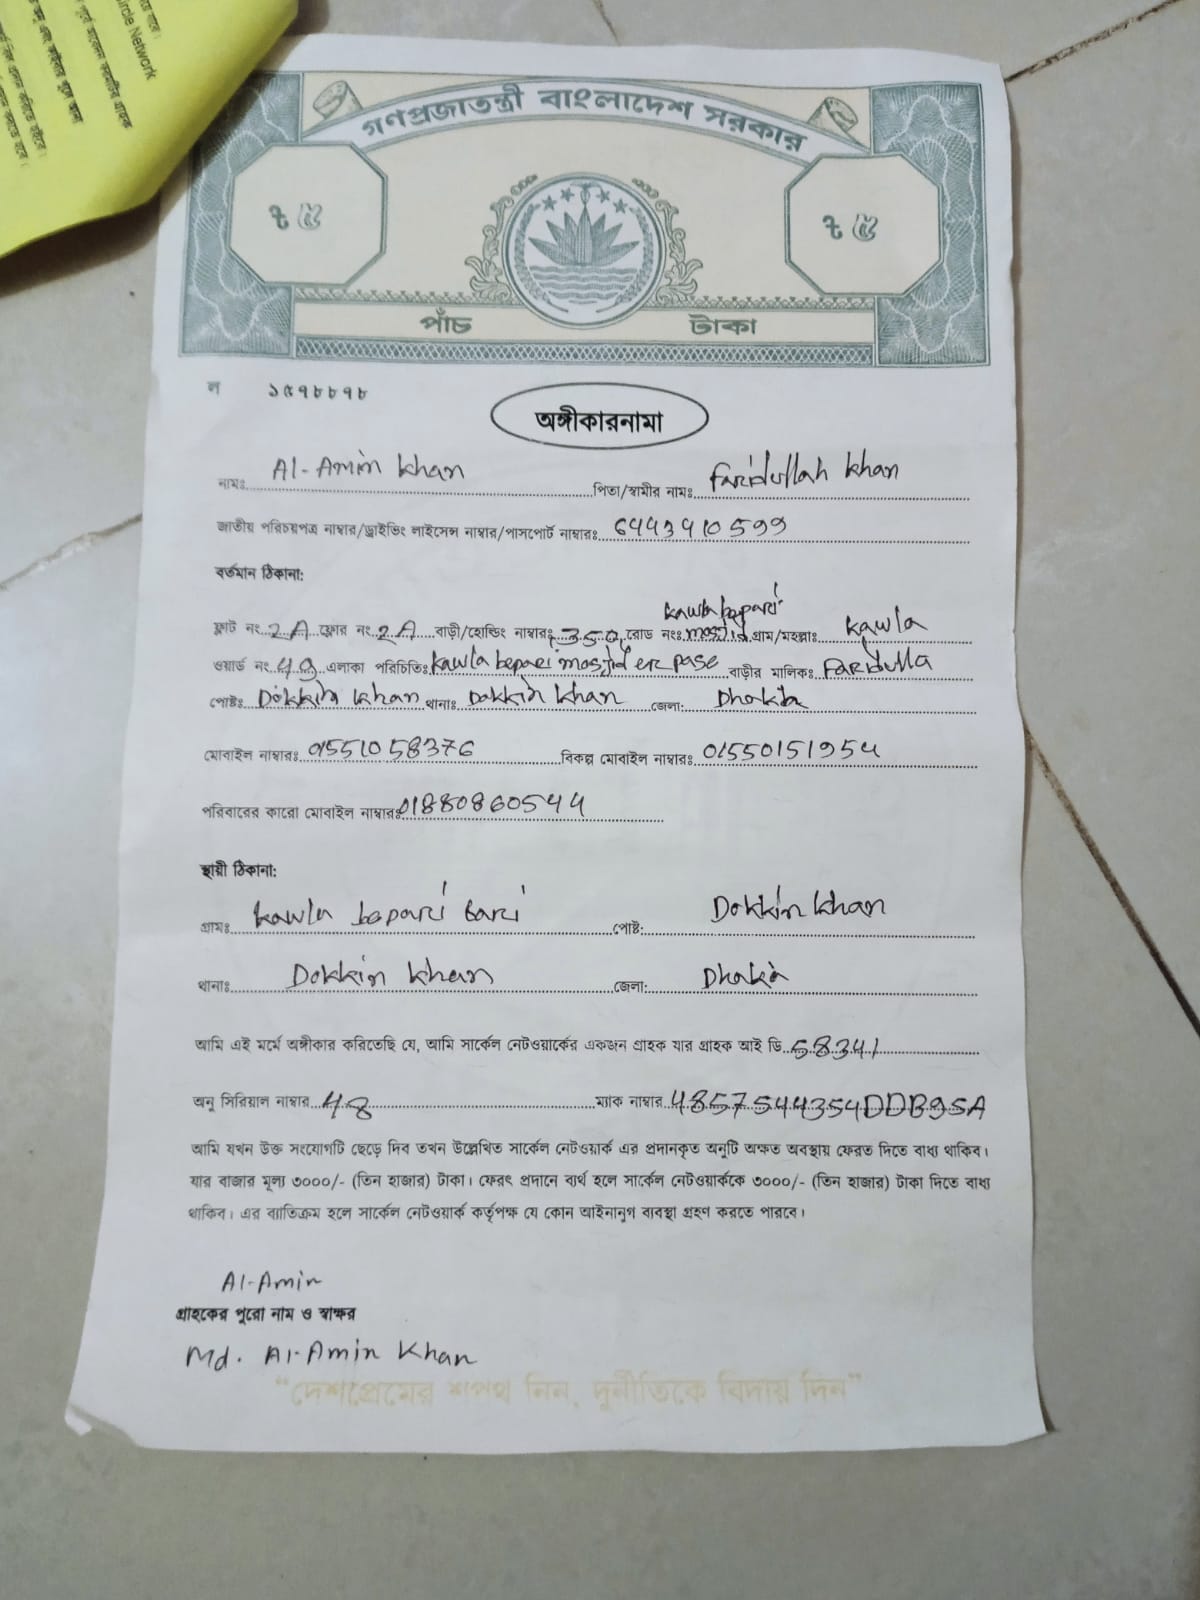 Circle Network
গণপ্রজাতন্ত্রী বাংলাদেশ সরকার
৳ ৫ ৳ ৫
পাঁচ টাকা
ল ১৫৭৮৮৭৮
অঙ্গীকারনামা
নামঃ Al-Amin Khan পিতা/স্বামীর নামঃ Faridullah Khan
জাতীয় পরিচয়পত্র নাম্বার/ড্রাইভিং লাইসেন্স নাম্বার/পাসপোর্ট নাম্বারঃ 6443910599
বর্তমান ঠিকানা:
ফ্লাট নং 2A ফ্লোর নং 2A বাড়ী/হোল্ডিং নাম্বারঃ 350 রোড নংঃ Kawla bepari mosjid গ্রাম/মহল্লাঃ Kawla
ওয়ার্ড নং 49 এলাকা পরিচিতিঃ Kawla bepari mosjid er pase বাড়ীর মালিকঃ Faridulla
পোষ্টঃ Dokkin Khan থানাঃ Dokkin Khan জেলা: Dhaka
মোবাইল নাম্বারঃ 01551058376 বিকল্প মোবাইল নাম্বারঃ 01550151954
পরিবারের কারো মোবাইল নাম্বারঃ 01880860544
স্থায়ী ঠিকানা:
গ্রামঃ Kawla bepari bari পোষ্ট: Dokkin Khan
থানাঃ Dokkin Khan জেলা: Dhaka
আমি এই মর্মে অঙ্গীকার করিতেছি যে, আমি সার্কেল নেটওয়ার্কের একজন গ্রাহক যার গ্রাহক আই ডি 58341
অনু সিরিয়াল নাম্বার 48 ম্যাক নাম্বার 4857544354DDB95A
আমি যখন উক্ত সংযোগটি ছেড়ে দিব তখন উল্লেখিত সার্কেল নেটওয়ার্ক এর প্রদানকৃত অনুটি অক্ষত অবস্থায় ফেরত দিতে বাধ্য থাকিব।
যার বাজার মূল্য ৩০০০/- (তিন হাজার) টাকা। ফেরৎ প্রদানে ব্যর্থ হলে সার্কেল নেটওয়ার্ককে ৩০০০/- (তিন হাজার) টাকা দিতে বাধ্য
থাকিব। এর ব্যতিক্রম হলে সার্কেল নেটওয়ার্ক কর্তৃপক্ষ যে কোন আইনানুগ ব্যবস্থা গ্রহণ করতে পারবে।
Al-Amin
গ্রাহকের পুরো নাম ও স্বাক্ষর
Md. Al-Amin Khan
“দেশপ্রেমের শপথ নিন, দুর্নীতিকে বিদায় দিন”